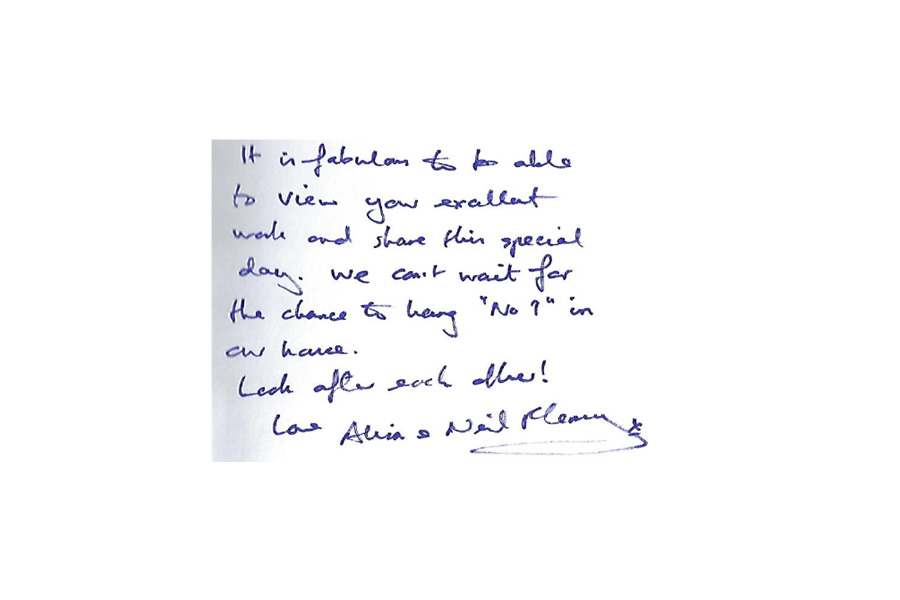 It is fabulous to be able
to view your excellent
work and share this special
day. We can't wait for
the chance to hang "No ?" in
our house.
Look after each other!
Love & Neil